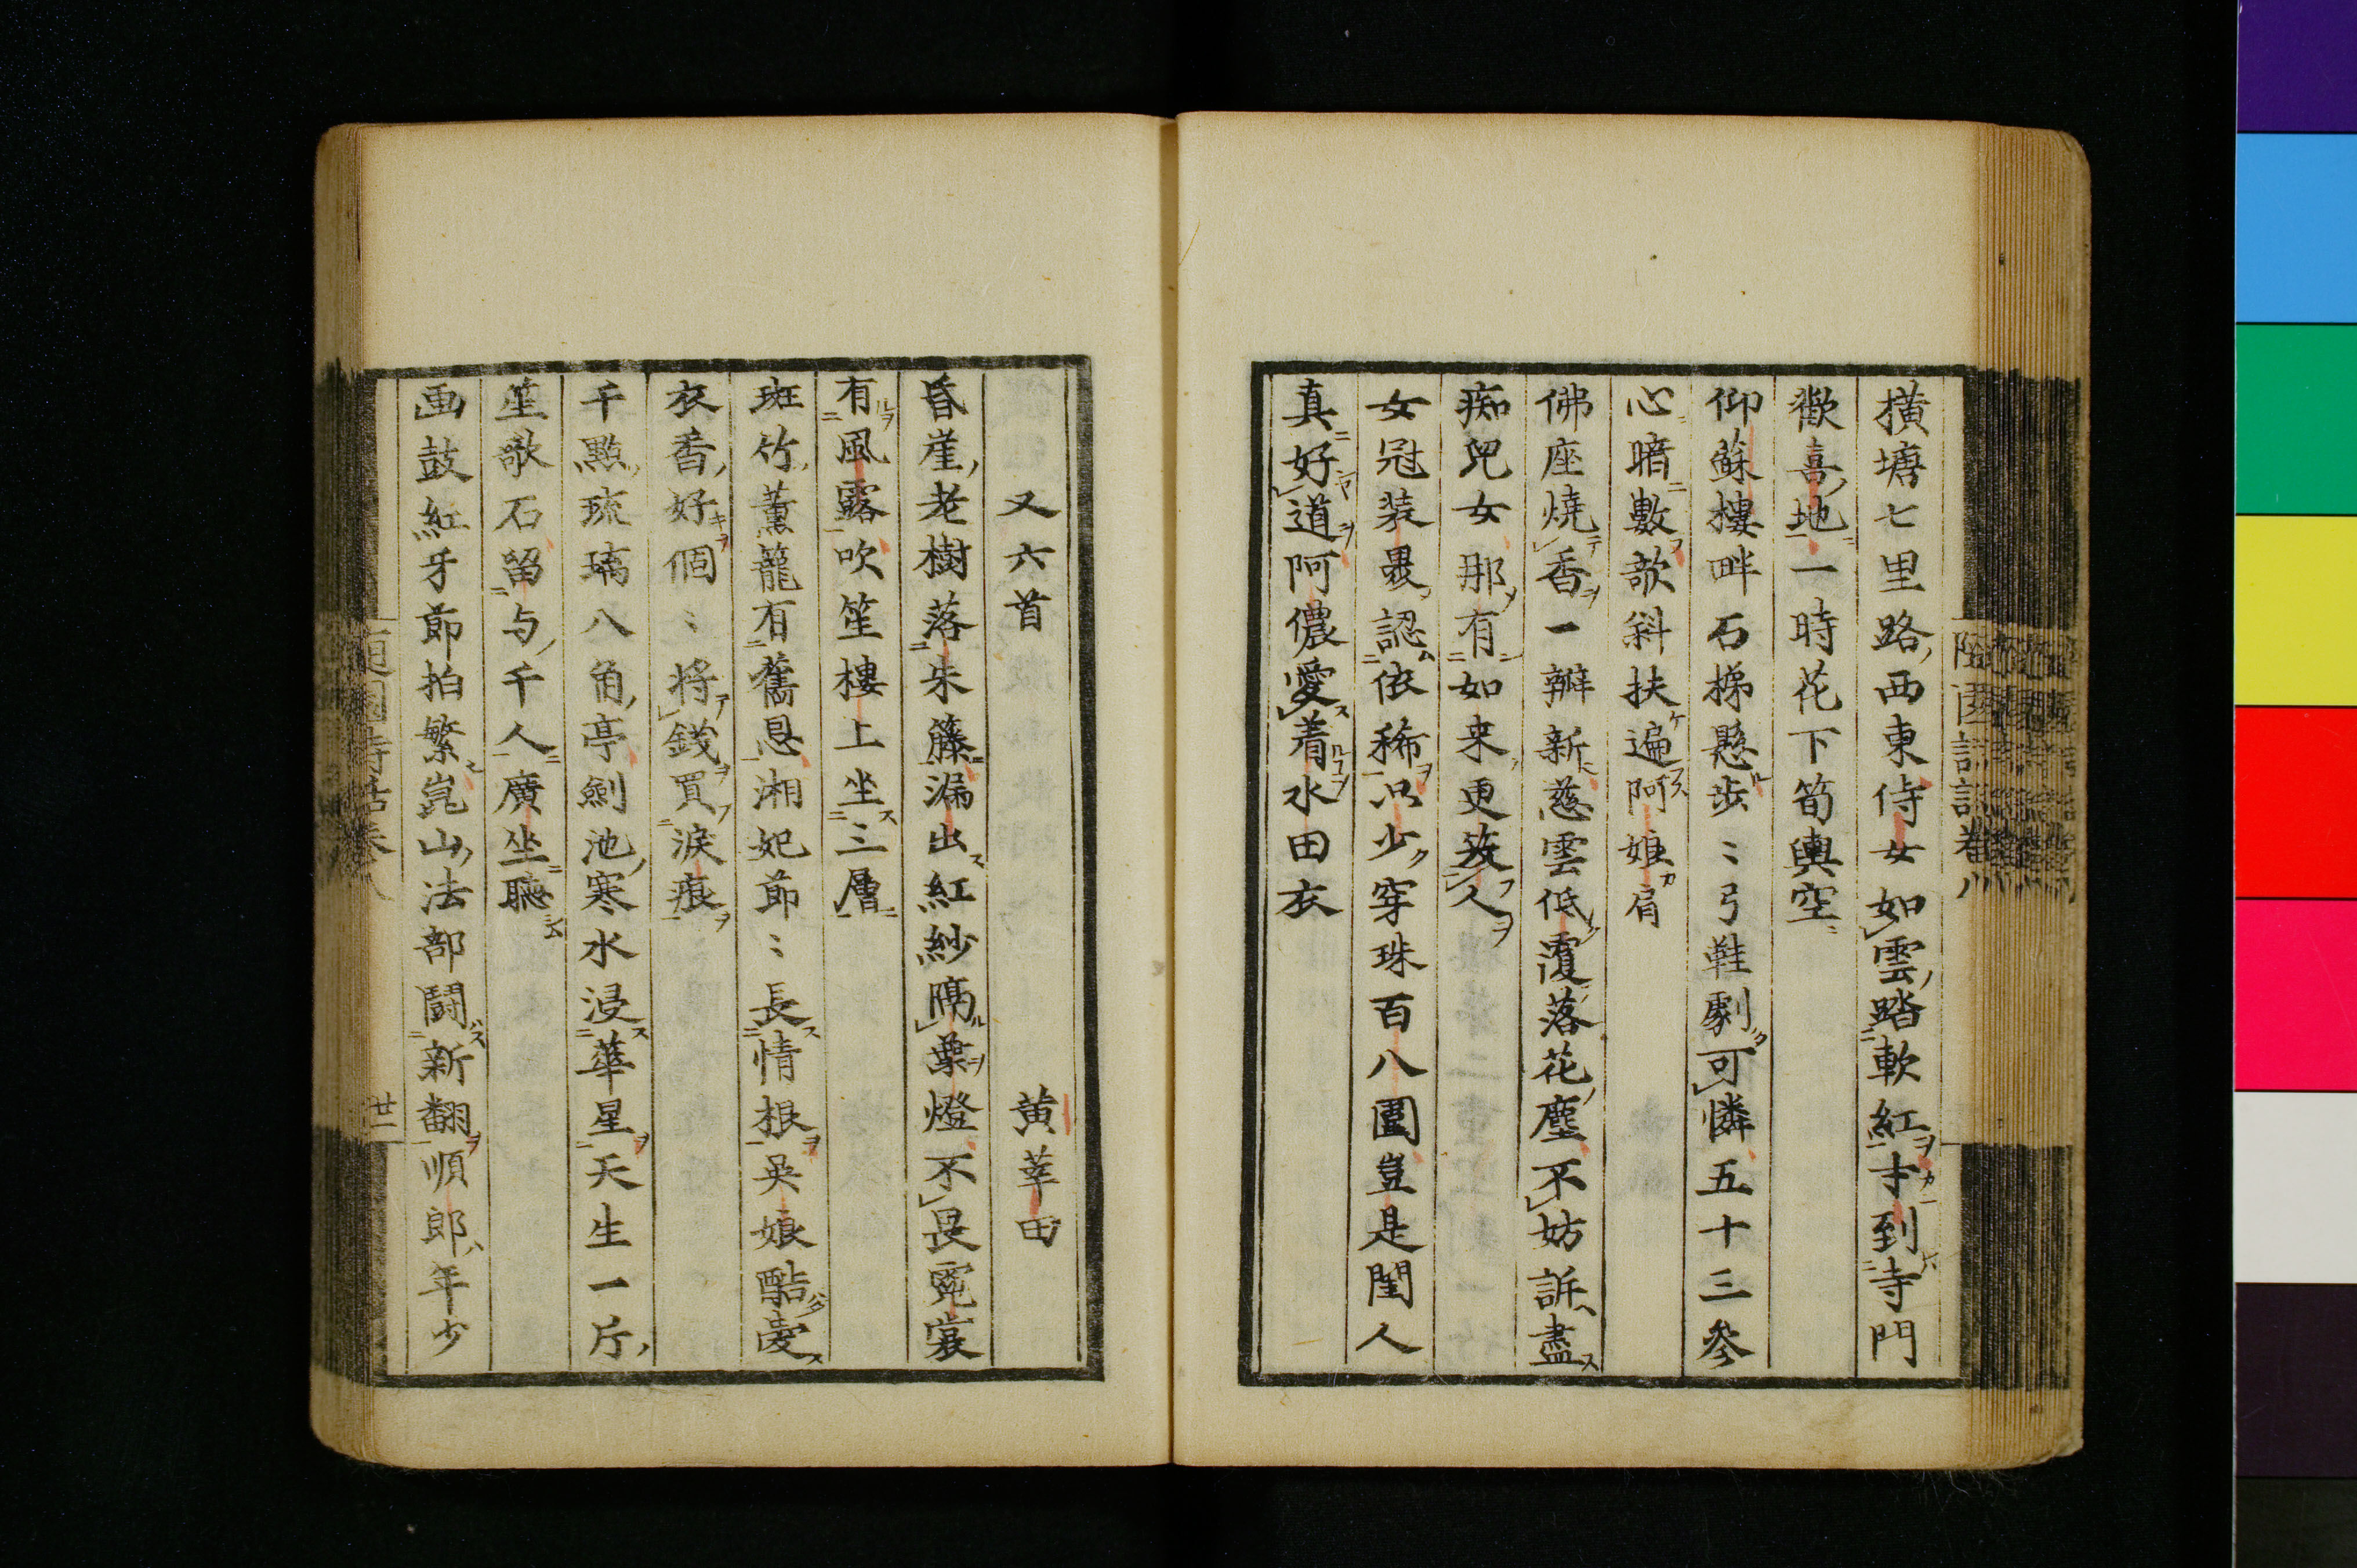 橫塘七里路西東侍女如雲踏軟紅才到寺門
歡喜地一時花下筍輿空
仰蘇樓畔石梯懸步〻弓鞋劇可憐五十三參
心暗數欹斜扶遍阿娘肩
佛座燒香一瓣新慈雲低覆落花塵不妨訴盡
痴兒女那有如来更笑人
女冠装裹認依稀只少穿珠百八圍豈是閨人
真好道阿儂愛着水田衣
又六首 黄莘田
昏崖老樹落朱藤漏出紅紗隔葉燈不畏霓裳
有風露吹笙樓上坐三層
斑竹薫籠有舊恩湘妃節〻長情根吳娘點愛
衣香好個〻将錢買淚痕
千點琉璃八角亭劍池寒水浸華星天生一片
笙歌石留与千人廣坐聴
画鼓紅牙節拍繁崑山法部鬪新翻順郎年少
隨園詩話卷八
廿一